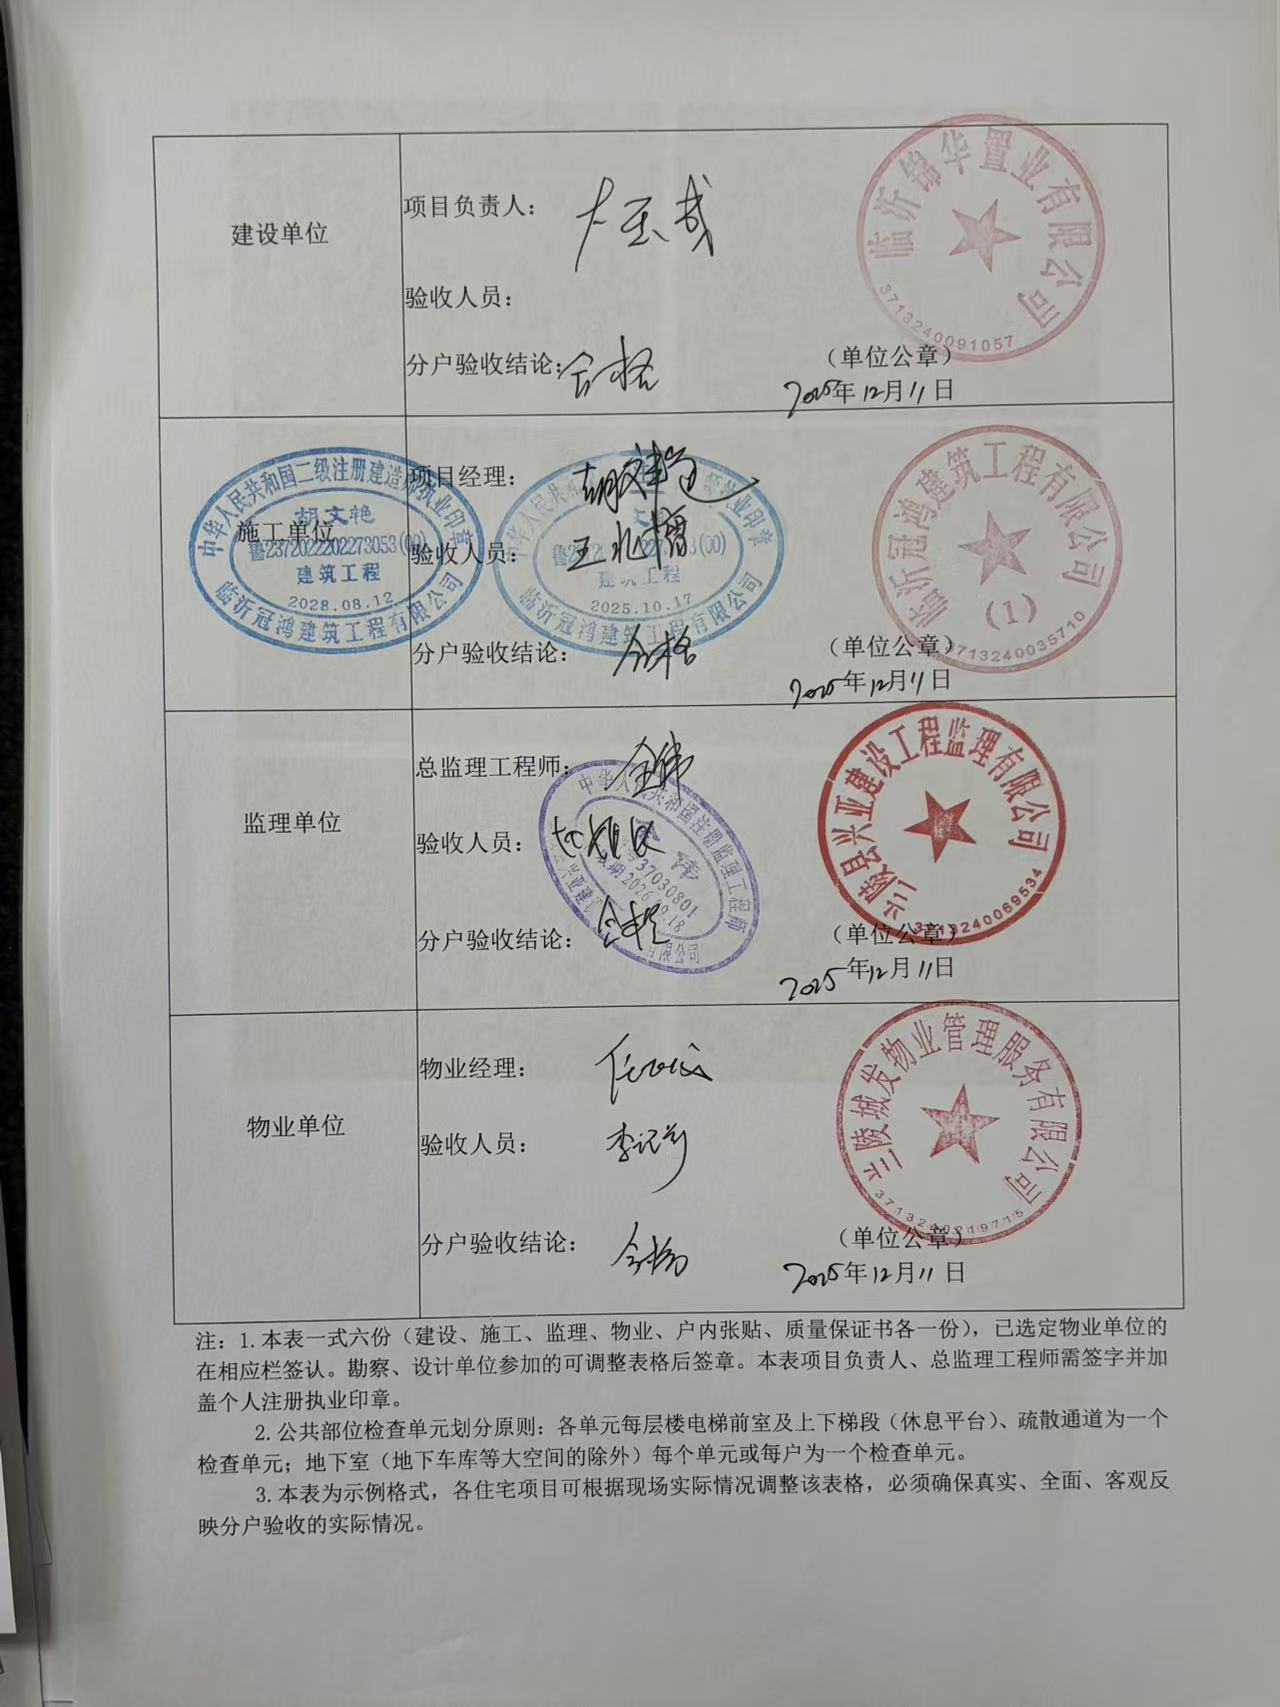 临沂锦华置业有限公司
3713240091057
建设单位
项目负责人：
验收人员：
分户验收结论：合格
（单位公章）
2025年12月11日
临沂冠鸿建筑工程有限公司
(1)
3713240035710
中华人民共和国二级注册建造师执业印章
胡文艳
鲁2372022202273053(00)
建筑工程
2028.08.12
临沂冠鸿建筑工程有限公司
施工单位
项目经理：
建筑工程
2025.10.17
临沂冠鸿建筑工程有限公司
验收人员：
分户验收结论：合格
（单位公章）
2025年12月11日
兰陵县兴亚建设工程监理有限公司
3713240069534
监理单位
总监理工程师：金伟
中华人民共和国注册监理工程师
37030801
验收人员：
分户验收结论：合格
（单位公章）
2025年12月11日
兰陵城发物业管理服务有限公司
3713240219715
物业单位
物业经理：
验收人员：
分户验收结论：合格
（单位公章）
2025年12月11日
注：1.本表一式六份（建设、施工、监理、物业、户内张贴、质量保证书各一份），已选定物业单位的
在相应栏签认。勘察、设计单位参加的可调整表格后签章。本表项目负责人、总监理工程师需签字并加
盖个人注册执业印章。
2.公共部位检查单元划分原则：各单元每层楼电梯前室及上下梯段（休息平台）、疏散通道为一个
检查单元；地下室（地下车库等大空间的除外）每个单元或每户为一个检查单元。
3.本表为示例格式，各住宅项目可根据现场实际情况调整该表格，必须确保真实、全面、客观反
映分户验收的实际情况。